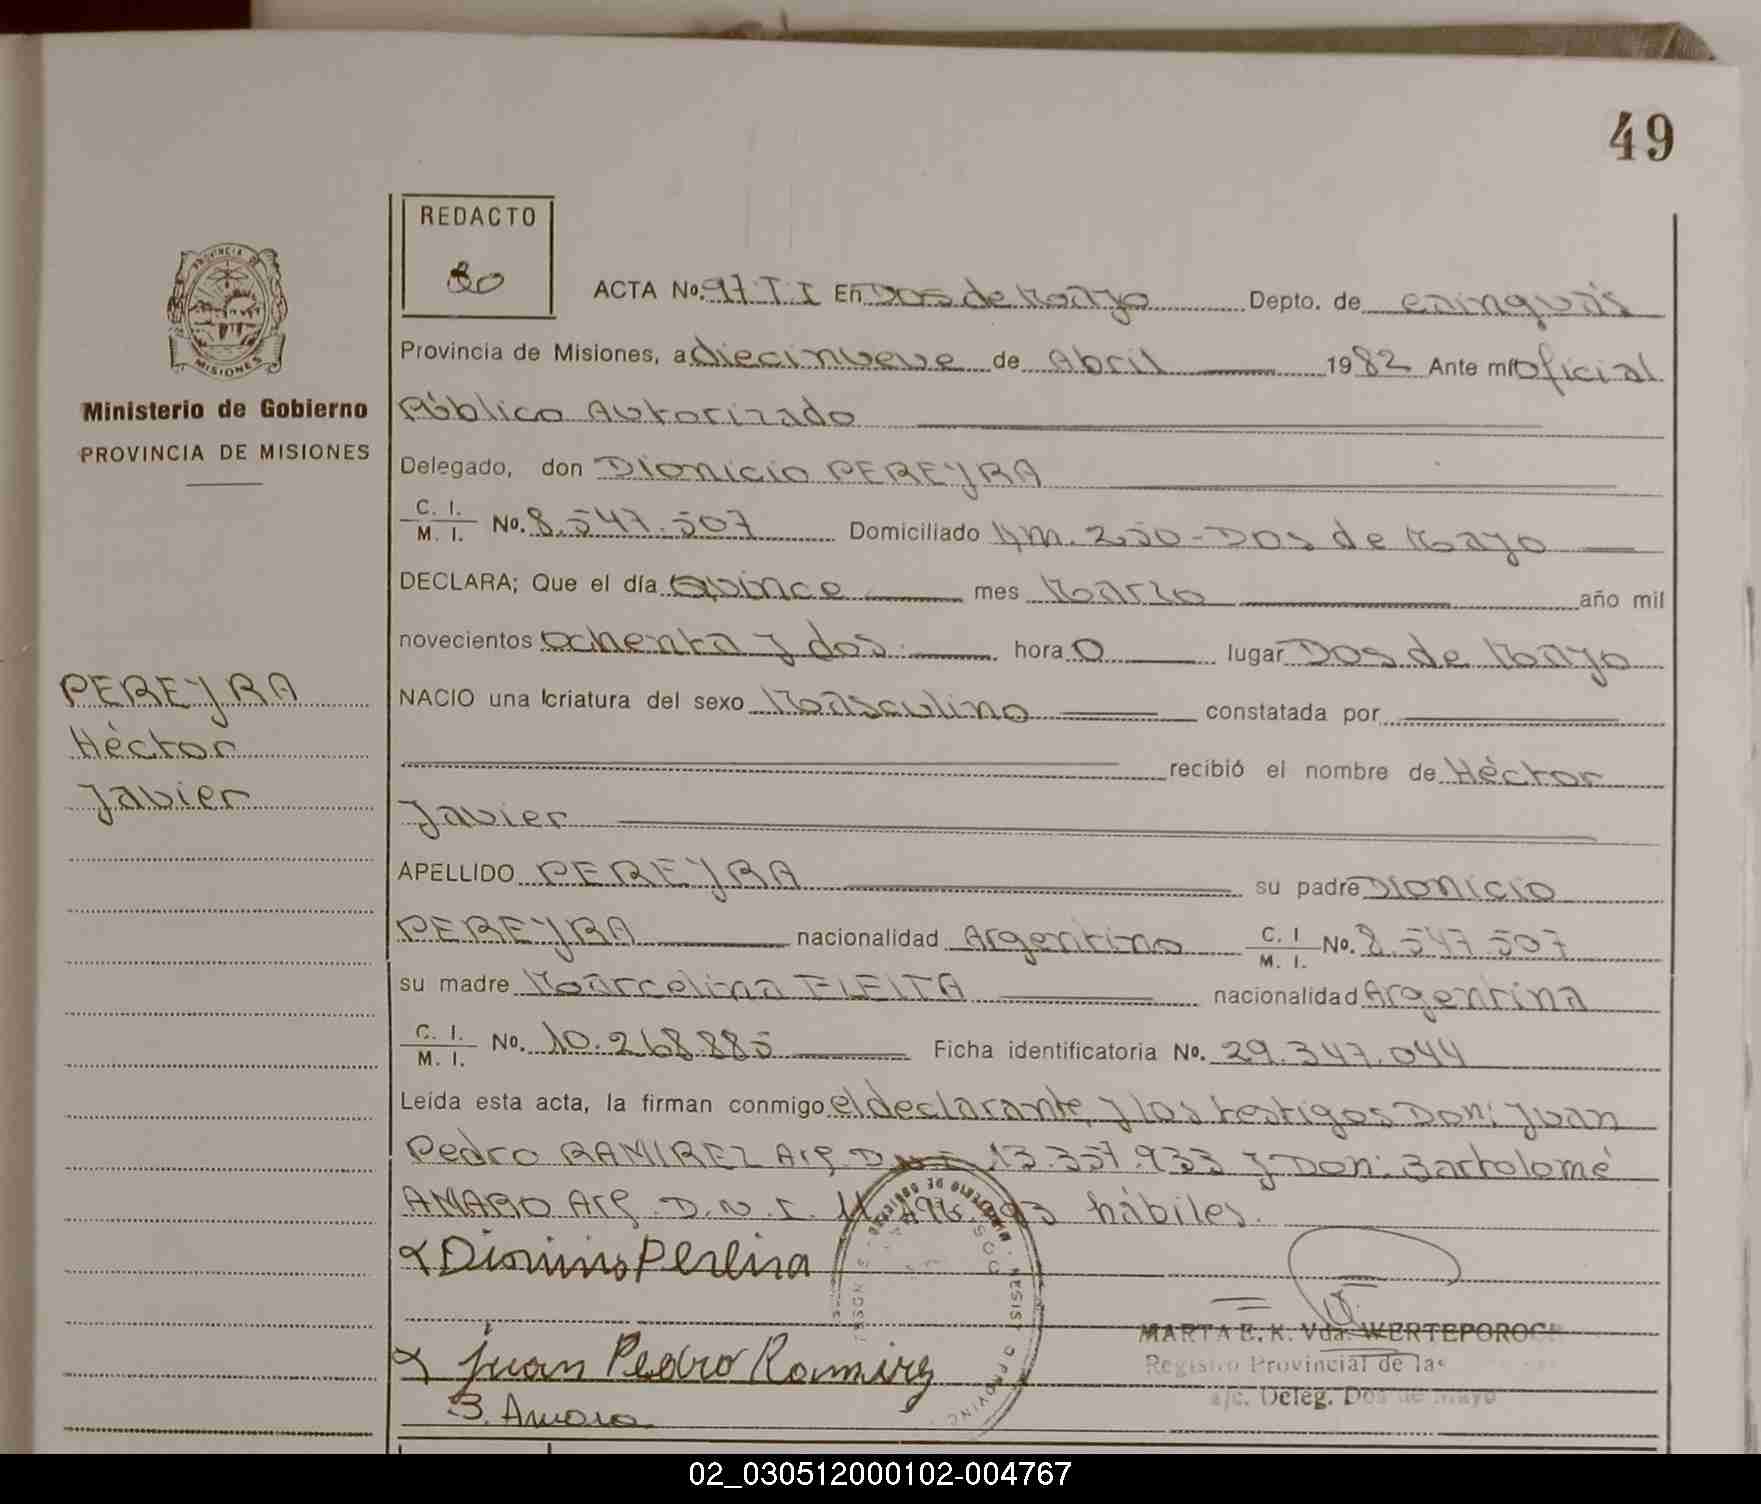 49
REDACTO
ACTA No. 97 T I En Dos de Mayo Depto. de Cainguás
Provincia de Misiones, a diecinueve de Abril 1982 Ante mí Oficial
Ministerio de Gobierno
Público Autorizado
PROVINCIA DE MISIONES
Delegado, don Dionicio PEREYRA
C. I.
M. I. No. 8.547.507 Domiciliado Km. 250 - Dos de Mayo
DECLARA; Que el día Quince mes Marzo año mil
novecientos ochenta y dos hora 0 lugar Dos de Mayo
PEREYRA
Héctor
Javier
NACIO una criatura del sexo Masculino constatada por
recibió el nombre de Héctor
Javier
APELLIDO PEREYRA su padre Dionicio
PEREYRA nacionalidad Argentino C. I M. I. No. 8.547.507
su madre Marcelina FLEITA nacionalidad Argentina
C. I.
M. I. No. 10.268.885 Ficha identificatoria No. 29.347.044
Leída esta acta, la firman conmigo el declarante y los testigos Don: Juan
Pedro RAMIREZ Arg. D.N.I. 13.357.933 y Don: Bartolomé
AMARO Arg. D.N.I. hábiles.
Dionicio Pereira
Juan Pedro Ramirez
B. Amaro
MARTA E. K. Vda. WERTEPOROCH
Registro Provincial de las
a/c. Deleg. Dos de Mayo
02_030512000102-004767